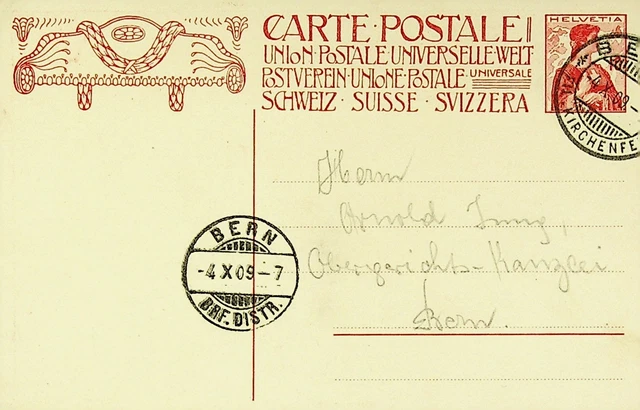 CARTE·POSTALE
UNION·POSTALE·UNIVERSELLE·WELT
POSTVEREIN·UNIONE·POSTALE·UNIVERSALE
SCHWEIZ·SUISSE·SVIZZERA
HELVETIA
KIRCHENFE
Herrn
Arnold Jung,
Obergerichts-Kanzlei
Bern.
BERN
-4.X.09-7
BRF. DISTR.